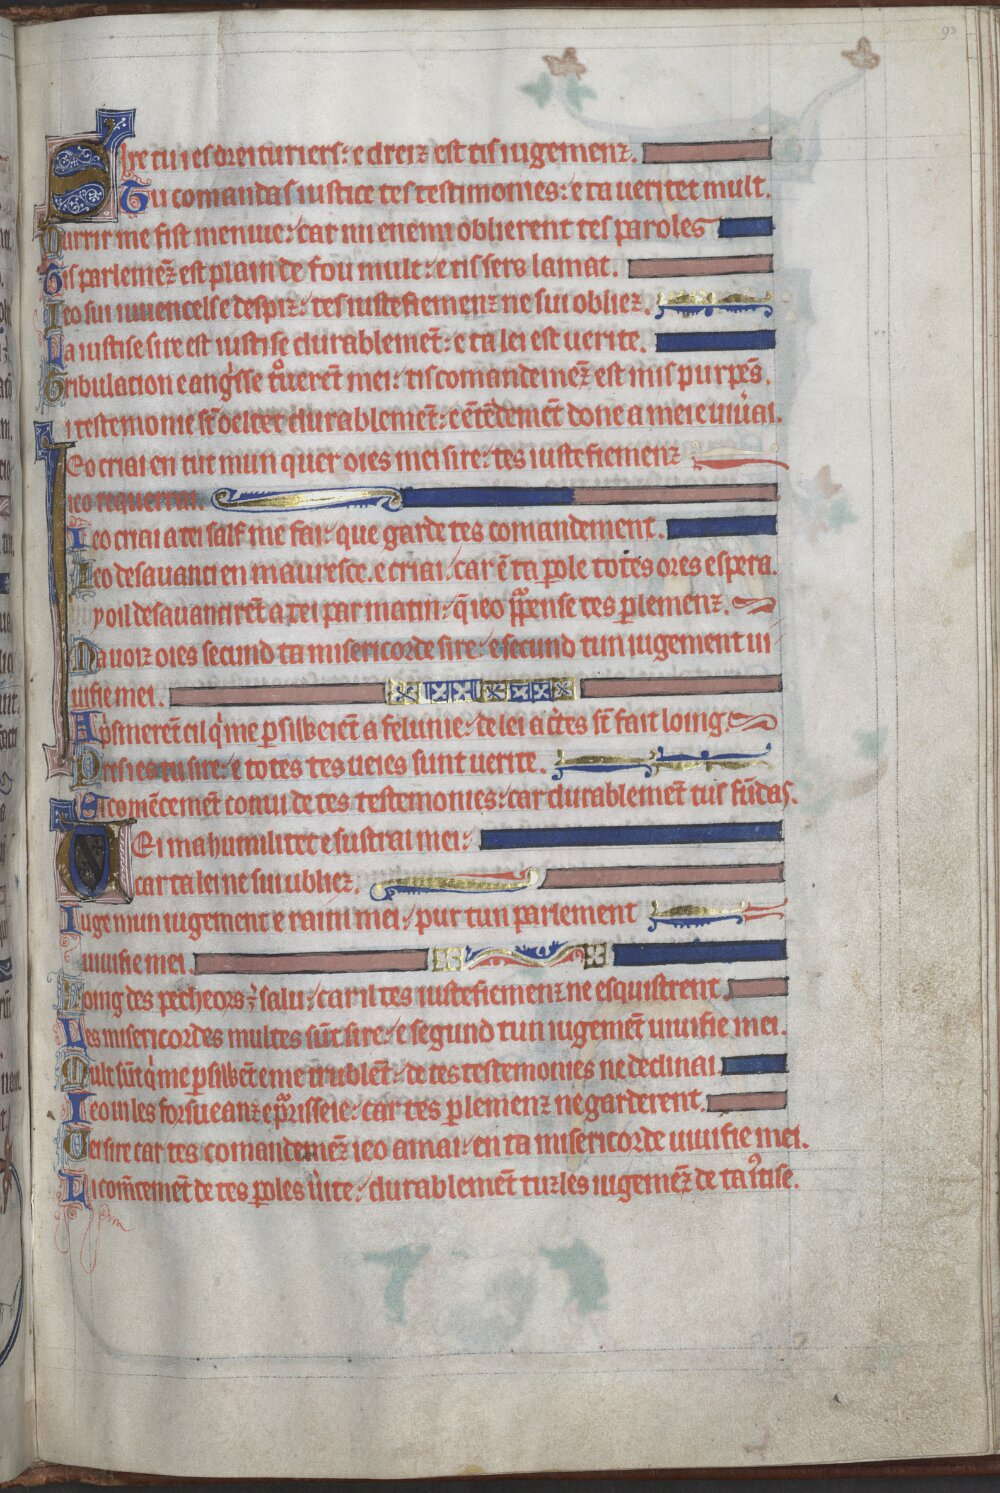 Sire tu ies dreituriers: e dreiz est tis iugemenz.
Tu comandas iustice tes testimonies: e ta ueritet mult.
Purrir me fist menuue: car mi enemi oblierent tes paroles
Tis parlemēz est plain de fou mult: e tis sers lamat.
Ieo sui iuuencels e despiz: tes iustefiemenz ne sui obliez.
La iustise sire est iustise durablement: e ta lei est uerite.
Tribulation e angisse truuerēt mei: tis comandemēz est mis purpēs.
testemonie durablemēt: ētēdemēt done a mei e uiurai.
Ieo criai en tut mun quer oies mei sire: tes iustefiemenz
ieo requerrai.
Ieo criai a tei salf me fai: que garde tes comandement.
Ieo desauanci en mauresce. e criai: car ē ta pole totes ores espera.
oil desauancirēt a tei par matin: q̄ ieo ppense tes plemenz.
Ma uoiz oies secund ta misericorde sire: e secund tun iugement ui
uifie mei.
Apsmerēt cil qi me psiweiēt a felunie: de lei a certes st fait loing.
Pres ies tu sire: e totes tes ueies sunt uerite.
comēcemēt conui de tes testemonies: car durablemēt tuis fūdas.
Uei ma humilitet e sustrai mei:
car ta lei ne sui ubliez.
Iuge mun iugement e raim mei: pur tun parlement
uiuifie mei.
Loing des pecheors salu: car il tes iustefiemenz ne esquistrent
Tes misericordes multes sūt sire: e segund tun iugemēt uiuifie mei.
Mult sūt qi me psiwēt e me trublēt: de tes testemonies ne declinai.
Ieo ui les forsueanz e prisseie: car tes plemenz ne garderent.
Uei sire car tes comandemēz ieo amai: en ta misericorde uiuifie mei.
Li comēcemēt de tes poles uite: durablemēt tuz les iugemēz de ta iustise.